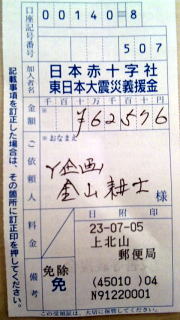 口座記号番号 00140-8
507
加入者名 日本赤十字社
東日本大震災義援金
金額 千百十万千百十円
¥62576
ご依頼人 *おなまえ
Y企画
金山耕士 様
料金 日附印
23-07-05
上北山
郵便局
備考 免除
免 (45010)04
N91220001
記載事項を訂正した場合は、その箇所に訂正印を押してください。
この受領証は、大切に保管してください。